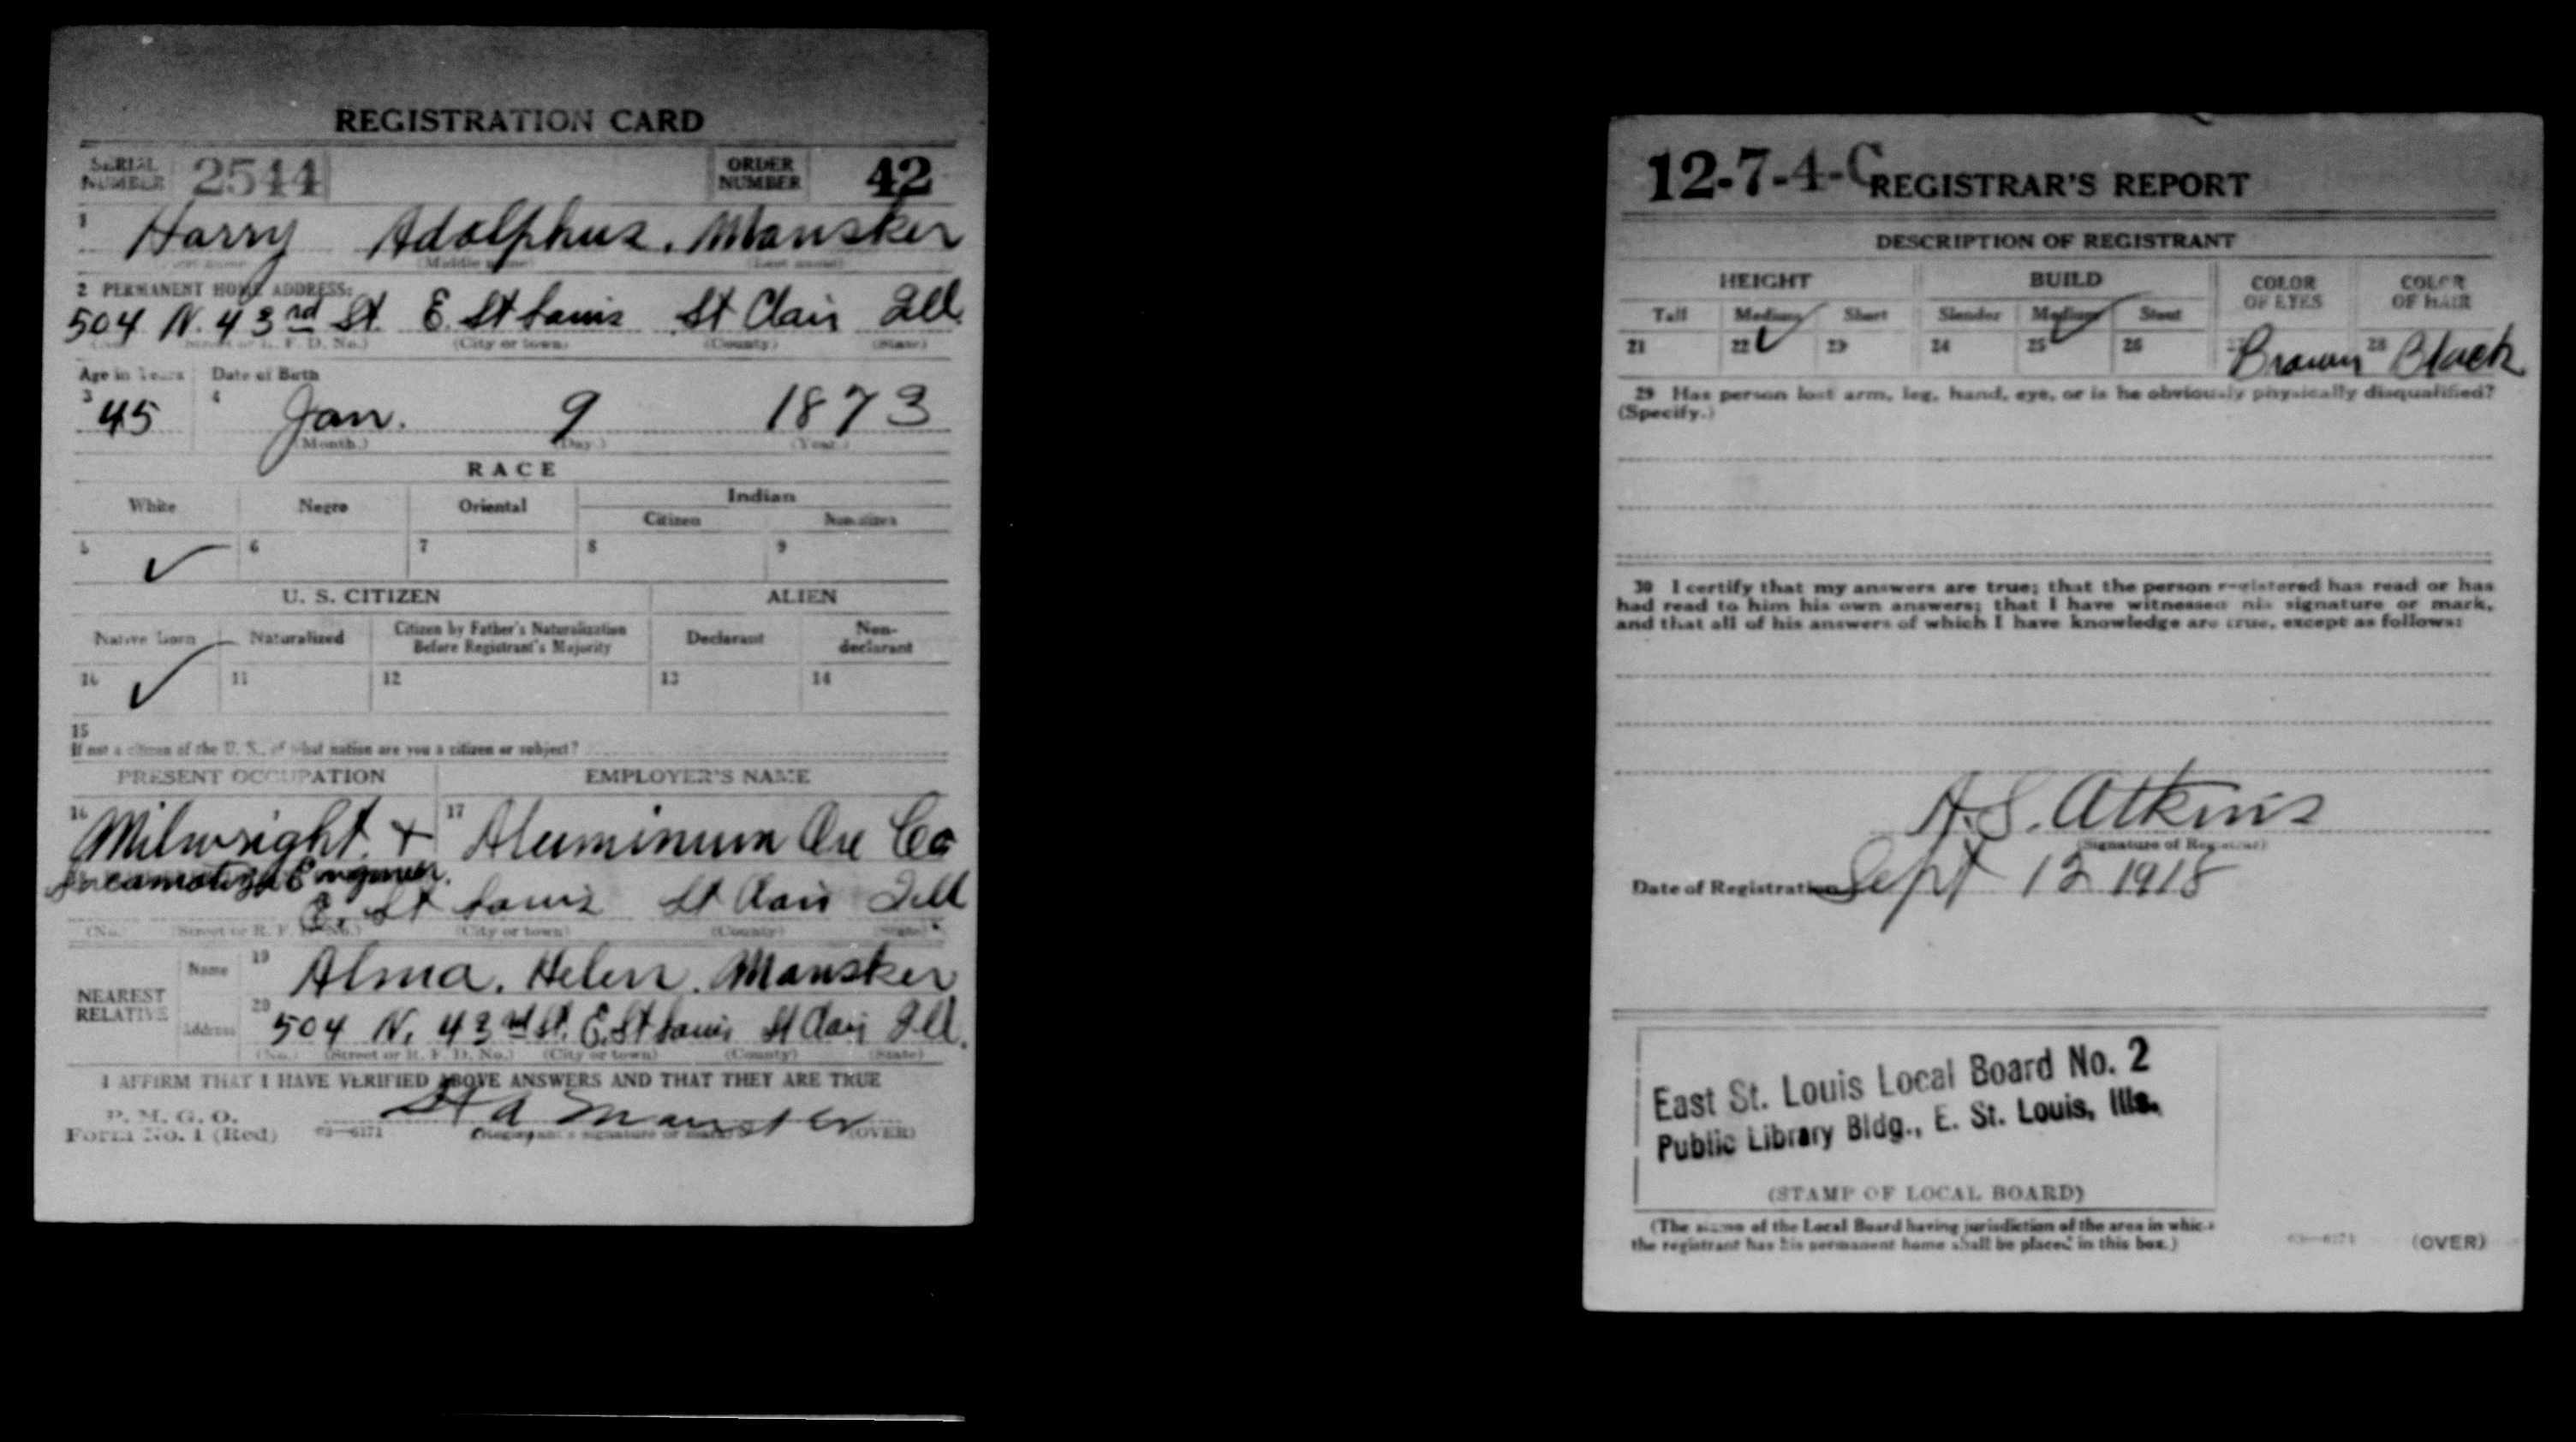 REGISTRATION CARD
SERIAL NUMBER 2544 ORDER NUMBER 42
1 Harry Adolphus. Mansker
(Middle name) (Last name)
2 PERMANENT HOME ADDRESS:
504 N. 43rd St. E. St Louis St Clair Ill.
(No.) (Street or R. F. D. No.) (City or town) (County) (State)
Age in Years Date of Birth
3 45 4 Jan. 9 1873
(Month.) (Day.) (Year.)
RACE
White Negro Oriental Indian
Citizen Noncitizen
5 ✓ 6 7 8 9
U. S. CITIZEN ALIEN
Native Born Naturalized Citizen by Father's Naturalization Before Registrant's Majority Declarant Non-declarant
10 ✓ 11 12 13 14
15
If not a citizen of the U. S., of what nation are you a citizen or subject?
PRESENT OCCUPATION EMPLOYER'S NAME
16 Milwright & 17 Aluminum Ore Co
Engineer.
E. St Louis St Clair Ill
(No.) (Street or R. F. D. No.) (City or town) (County) (State)
NEAREST RELATIVE
Name 19 Alma. Helen. Mansker
Address 20 504 N. 43rd St. E. St Louis St Clair Ill.
(No.) (Street or R. F. D. No.) (City or town) (County) (State)
I AFFIRM THAT I HAVE VERIFIED ABOVE ANSWERS AND THAT THEY ARE TRUE
P. M. G. O.
Form No. 1 (Red) 03—6171 H A Mansker (OVER)
(Registrant's signature or mark)
12-7-4-C REGISTRAR'S REPORT
DESCRIPTION OF REGISTRANT
HEIGHT BUILD COLOR OF EYES COLOR OF HAIR
Tall Medium Short Slender Medium Stout
21 22 ✓ 23 24 25 ✓ 26 27 Brown 28 Black
29 Has person lost arm, leg, hand, eye, or is he obviously physically disqualified?
(Specify.)
30 I certify that my answers are true; that the person registered has read or has
had read to him his own answers; that I have witnessed his signature or mark,
and that all of his answers of which I have knowledge are true, except as follows:
A. S. Atkins
(Signature of Registrar)
Date of Registration Sept 12 1918
East St. Louis Local Board No. 2
Public Library Bldg., E. St. Louis, Ills.
(STAMP OF LOCAL BOARD)
(The stamp of the Local Board having jurisdiction of the area in which
the registrant has his permanent home shall be placed in this box.) 03—6171 (OVER)